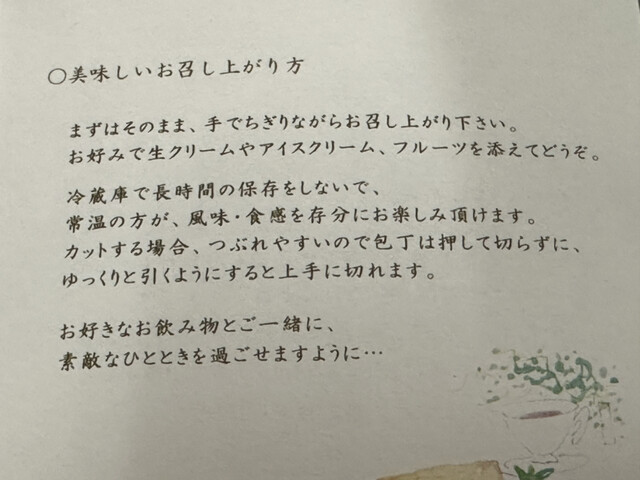 ○美味しいお召し上がり方
まずはそのまま、手でちぎりながらお召し上がり下さい。
お好みで生クリームやアイスクリーム、フルーツを添えてどうぞ。
冷蔵庫で長時間の保存をしないで、
常温の方が、風味・食感を存分にお楽しみ頂けます。
カットする場合、つぶれやすいので包丁は押して切らずに、
ゆっくりと引くようにすると上手に切れます。
お好きなお飲み物とご一緒に、
素敵なひとときを過ごせますように…